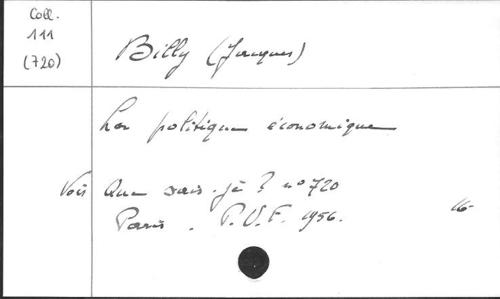 Coll.
111
(720)
Billy (Jacques)
La politique économique
Voir Que sais-je ? n° 720
Paris. P.U.F. 1956.
16-